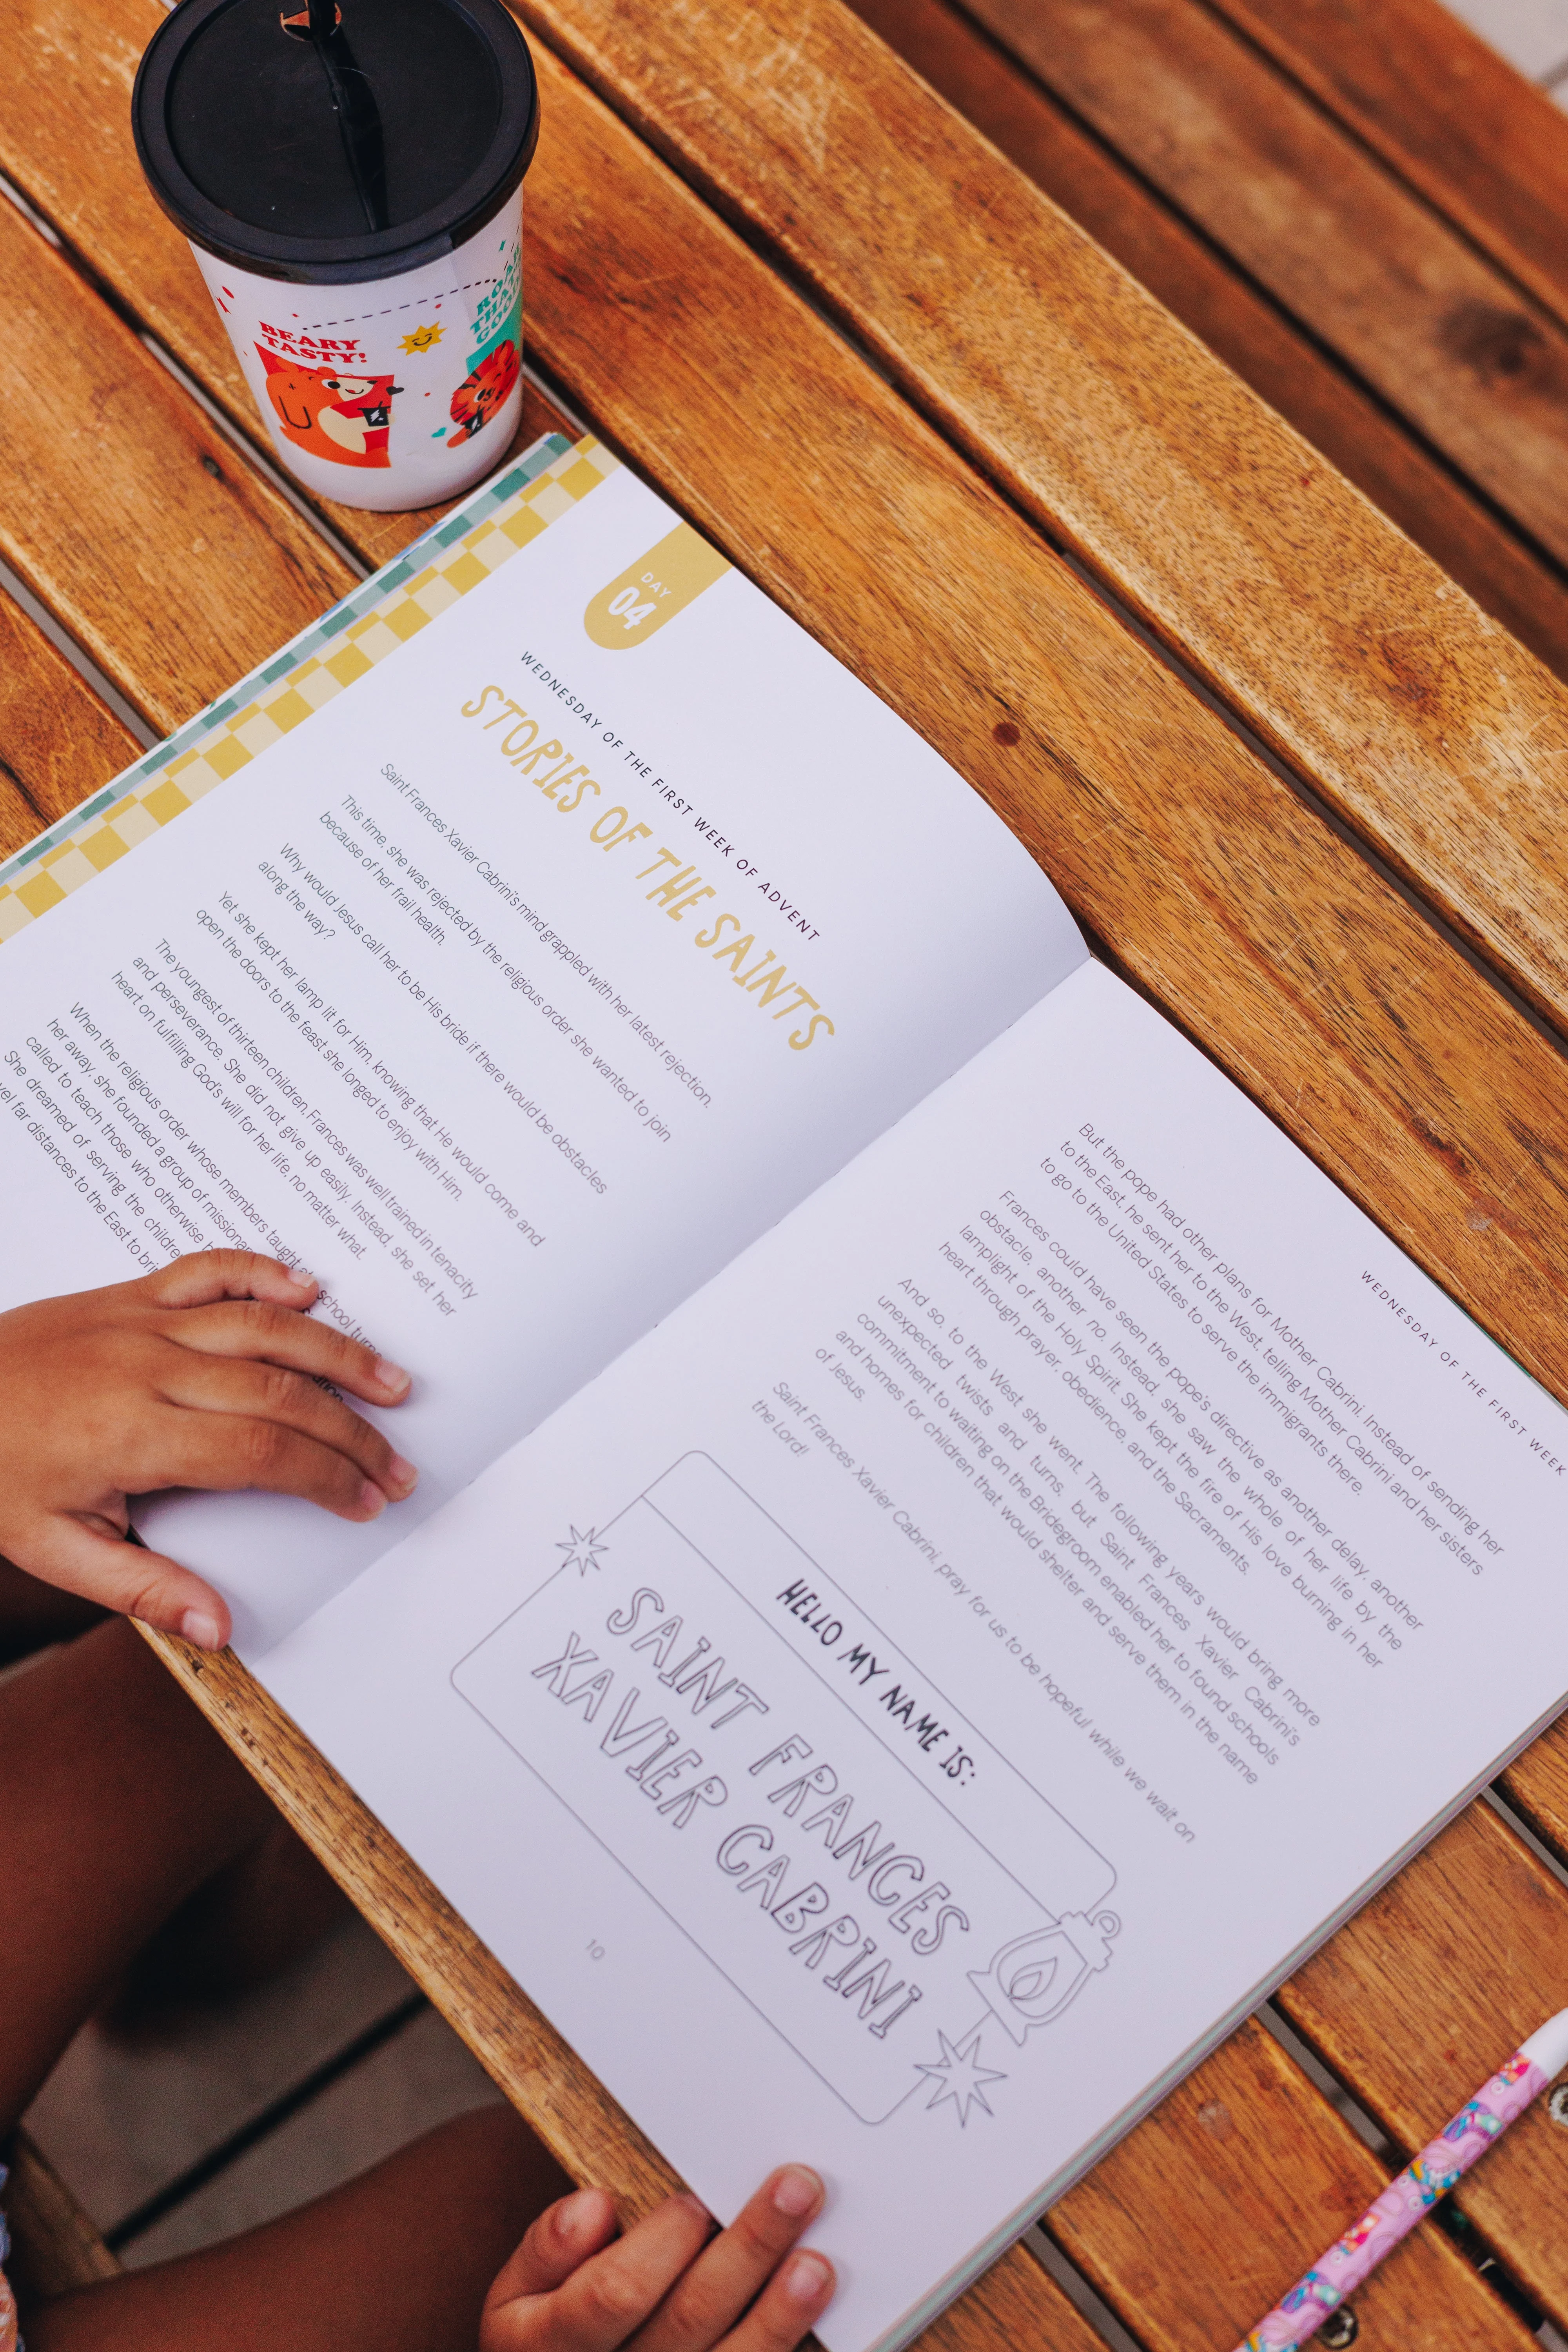 BEARY
TASTY!
ROAR
THAT'S
GOOD
DAY
04
WEDNESDAY OF THE FIRST WEEK OF ADVENT
STORIES OF THE SAINTS
Saint Frances Xavier Cabrini's mind grappled with her latest rejection.
This time, she was rejected by the religious order she wanted to join
because of her frail health.
Why would Jesus call her to be His bride if there would be obstacles
along the way?
Yet she kept her lamp lit for Him, knowing that He would come and
open the doors to the feast she longed to enjoy with Him.
The youngest of thirteen children, Frances was well trained in tenacity
and perseverance. She did not give up easily. Instead, she set her
heart on fulfilling God's will for her life, no matter what.
When the religious order whose members taught at school turne
her away, she founded a group of missionar
called to teach those who otherwise
She dreamed of serving the childre
far distances to the East to brin
WEDNESDAY OF THE FIRST WEEK
But the pope had other plans for Mother Cabrini. Instead of sending her
to the East, he sent her to the West, telling Mother Cabrini and her sisters
to go to the United States to serve the immigrants there.
Frances could have seen the pope's directive as another delay, another
obstacle, another no. Instead, she saw the whole of her life by the
lamplight of the Holy Spirit. She kept the fire of His love burning in her
heart through prayer, obedience, and the Sacraments.
And so, to the West she went. The following years would bring more
unexpected twists and turns, but Saint Frances Xavier Cabrini's
commitment to waiting on the Bridegroom enabled her to found schools
and homes for children that would shelter and serve them in the name
of Jesus.
Saint Frances Xavier Cabrini, pray for us to be hopeful while we wait on
the Lord!
HELLO MY NAME IS:
SAINT FRANCES
XAVIER CABRINI
10